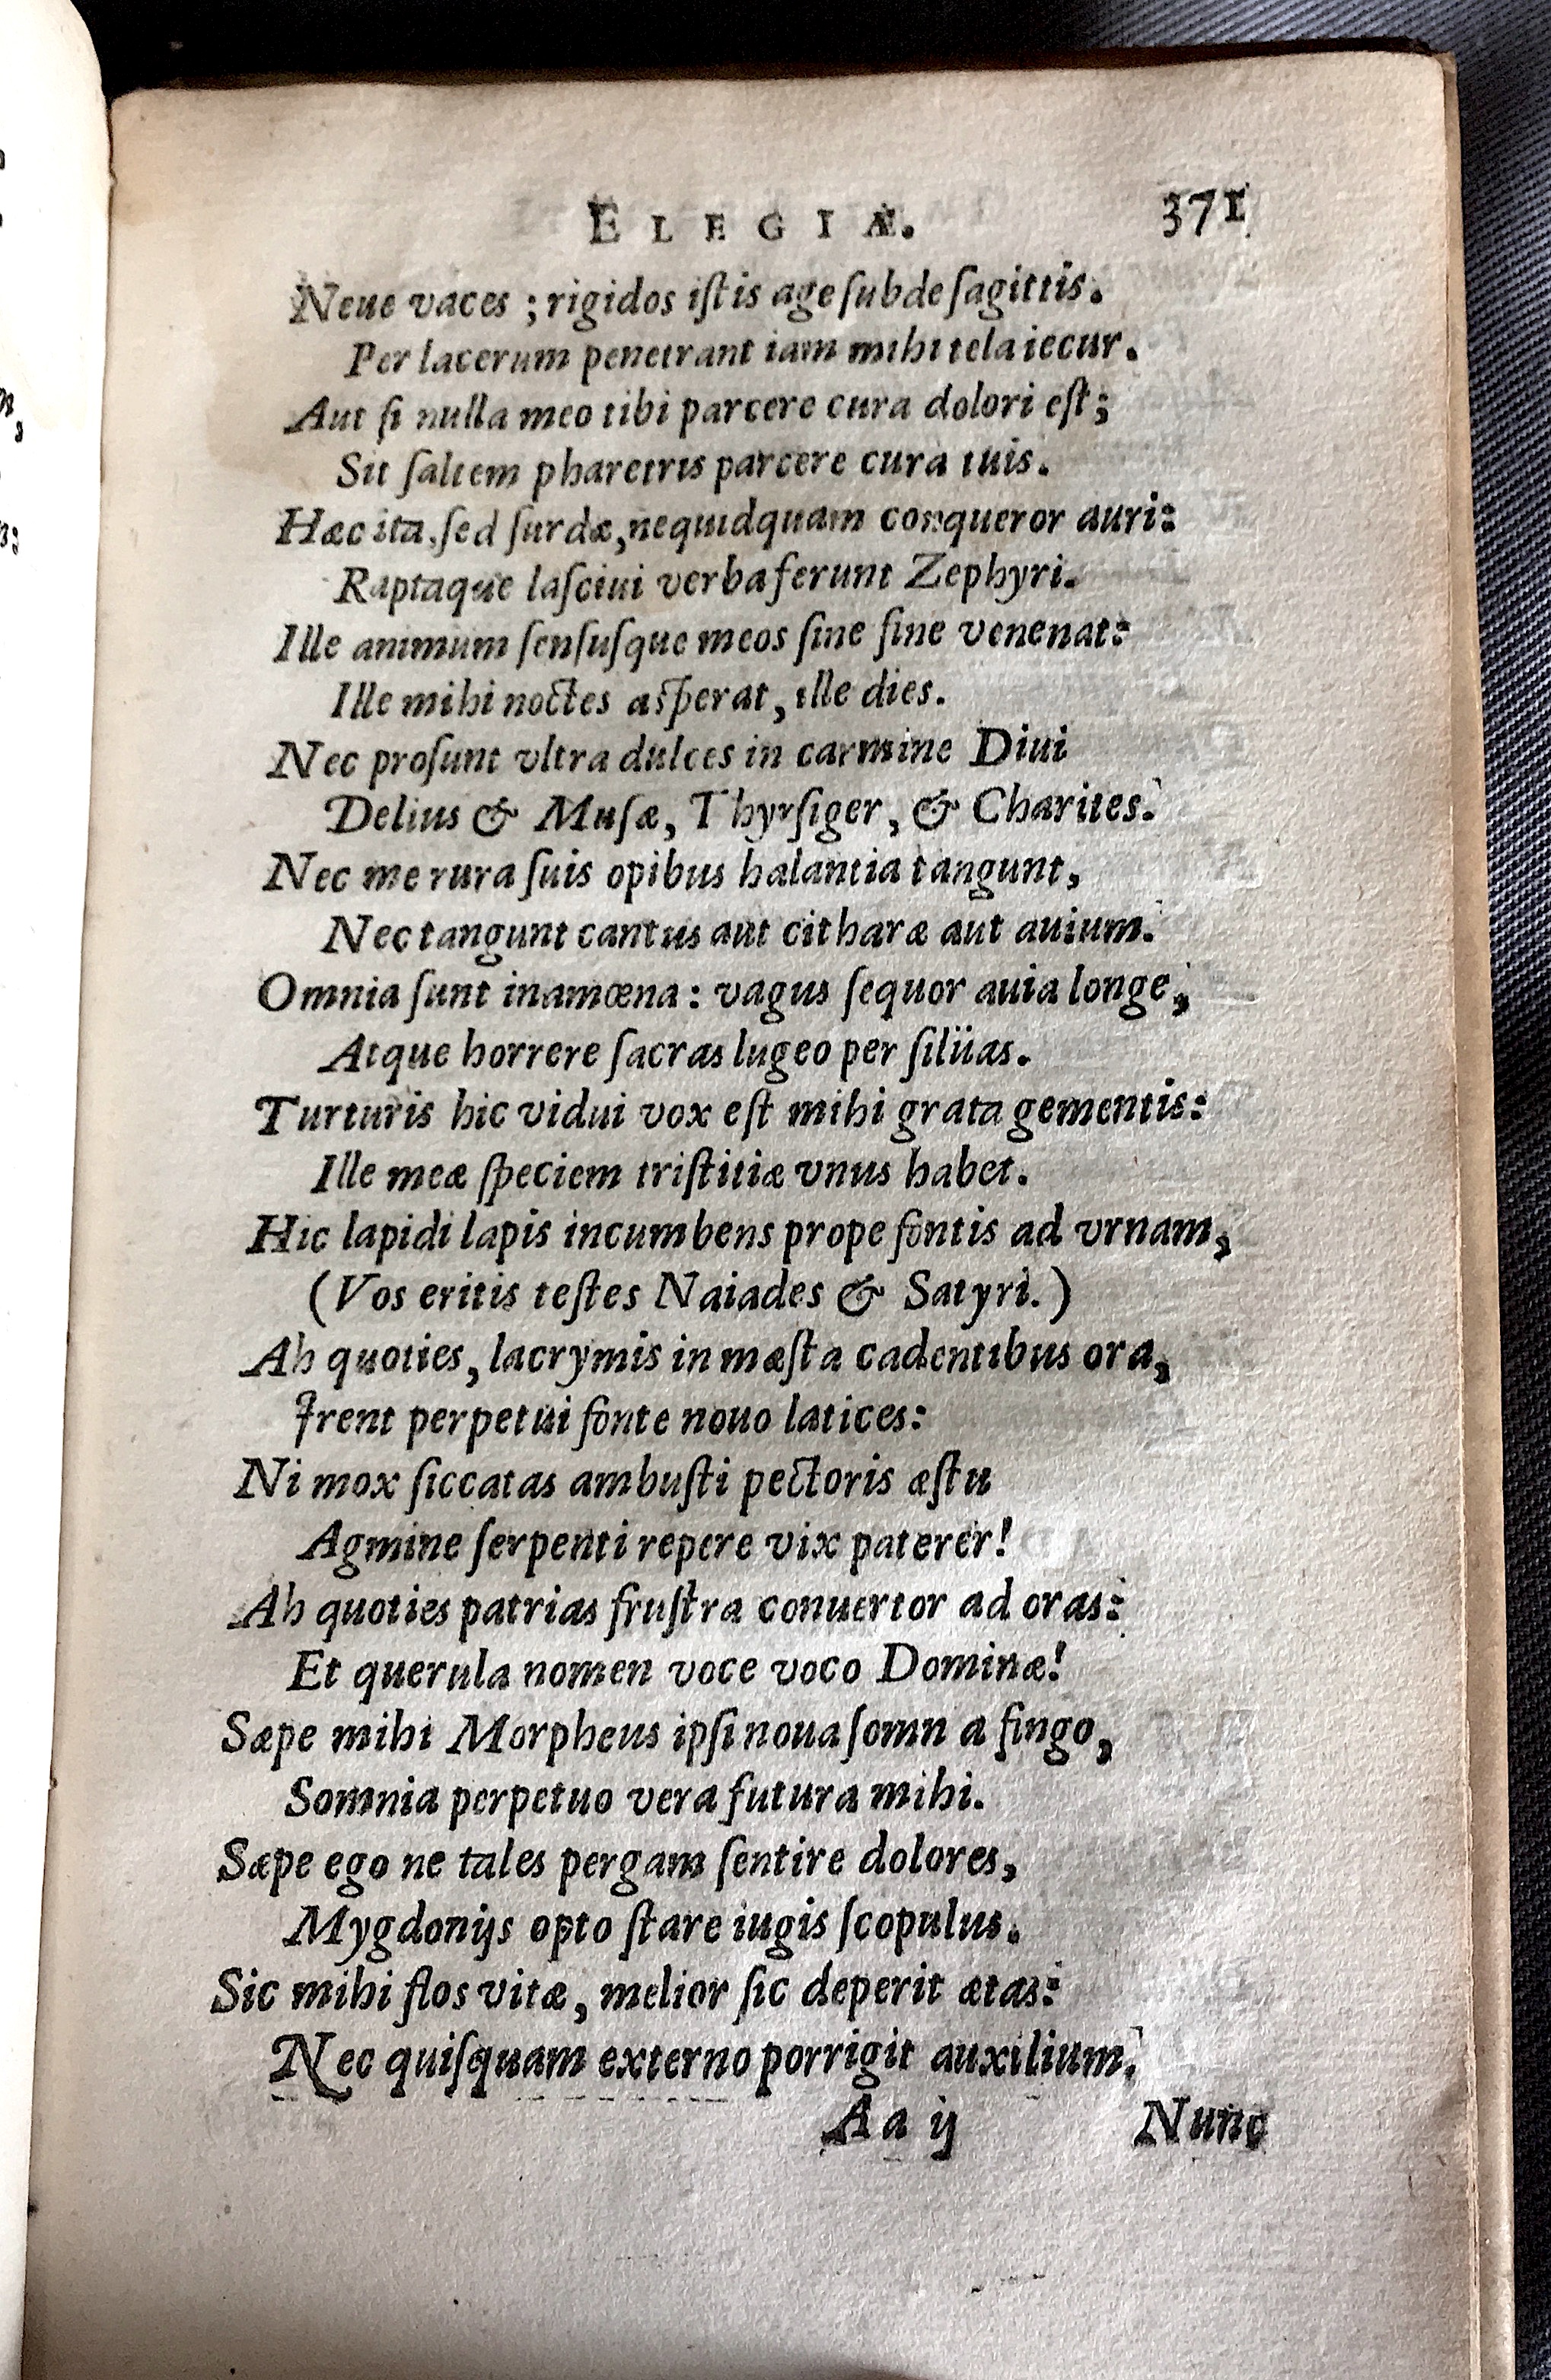 ELEGIÆ. 371
Neue vaces ; rigidos iſtis age ſubde ſagittis.
Per lacerum penetrant iam mihi tela iecur.
Aut ſi nulla meo tibi parcere cura dolori eſt;
Sit ſaltem pharetris parcere cura tuis.
Hæc ita. ſed ſurdæ, nequidquam conqueror auri:
Raptaque laſciui verba ferunt Zephyri.
Ille animum ſenſuſque meos ſine fine venenat:
Ille mihi noctes aſperat, ille dies.
Nec proſunt vltra dulces in carmine Diui
Delius & Muſæ, Thyrſiger, & Charites.
Nec me rura ſuis opibus halantia tangunt,
Nec tangunt cantus aut citharæ aut auium.
Omnia ſunt inamœna : vagus ſequor auia longe,
Atque horrere ſacras lugeo per ſilüas.
Turturis hic vidui vox eſt mihi grata gementis:
Ille meæ ſpeciem triſtitiæ vnus habet.
Hic lapidi lapis incumbens prope fontis ad vrnam,
(Vos eritis teſtes Naiades & Satyri.)
Ah quoties, lacrymis in mæſta cadentibus ora,
Irent perpetui fonte nouo latices:
Ni mox ſiccatas ambuſti pectoris æſtu
Agmine ſerpenti repere vix paterer!
Ah quoties patrias fruſtra conuertor ad oras:
Et querula nomen voce voco Dominæ!
Sæpe mihi Morpheus ipſi noua ſomn a fingo,
Somnia perpetuo vera futura mihi.
Sæpe ego ne tales pergam ſentire dolores,
Mygdonijs opto ſtare iugis ſcopulus.
Sic mihi flos vitæ, melior ſic deperit ætas:
Nec quiſquam externo porrigit auxilium.
Aa ij Nunc